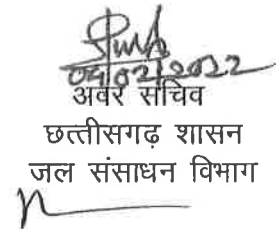 04/02/2022
अवर सचिव
छत्तीसगढ़ शासन
जल संसाधन विभाग